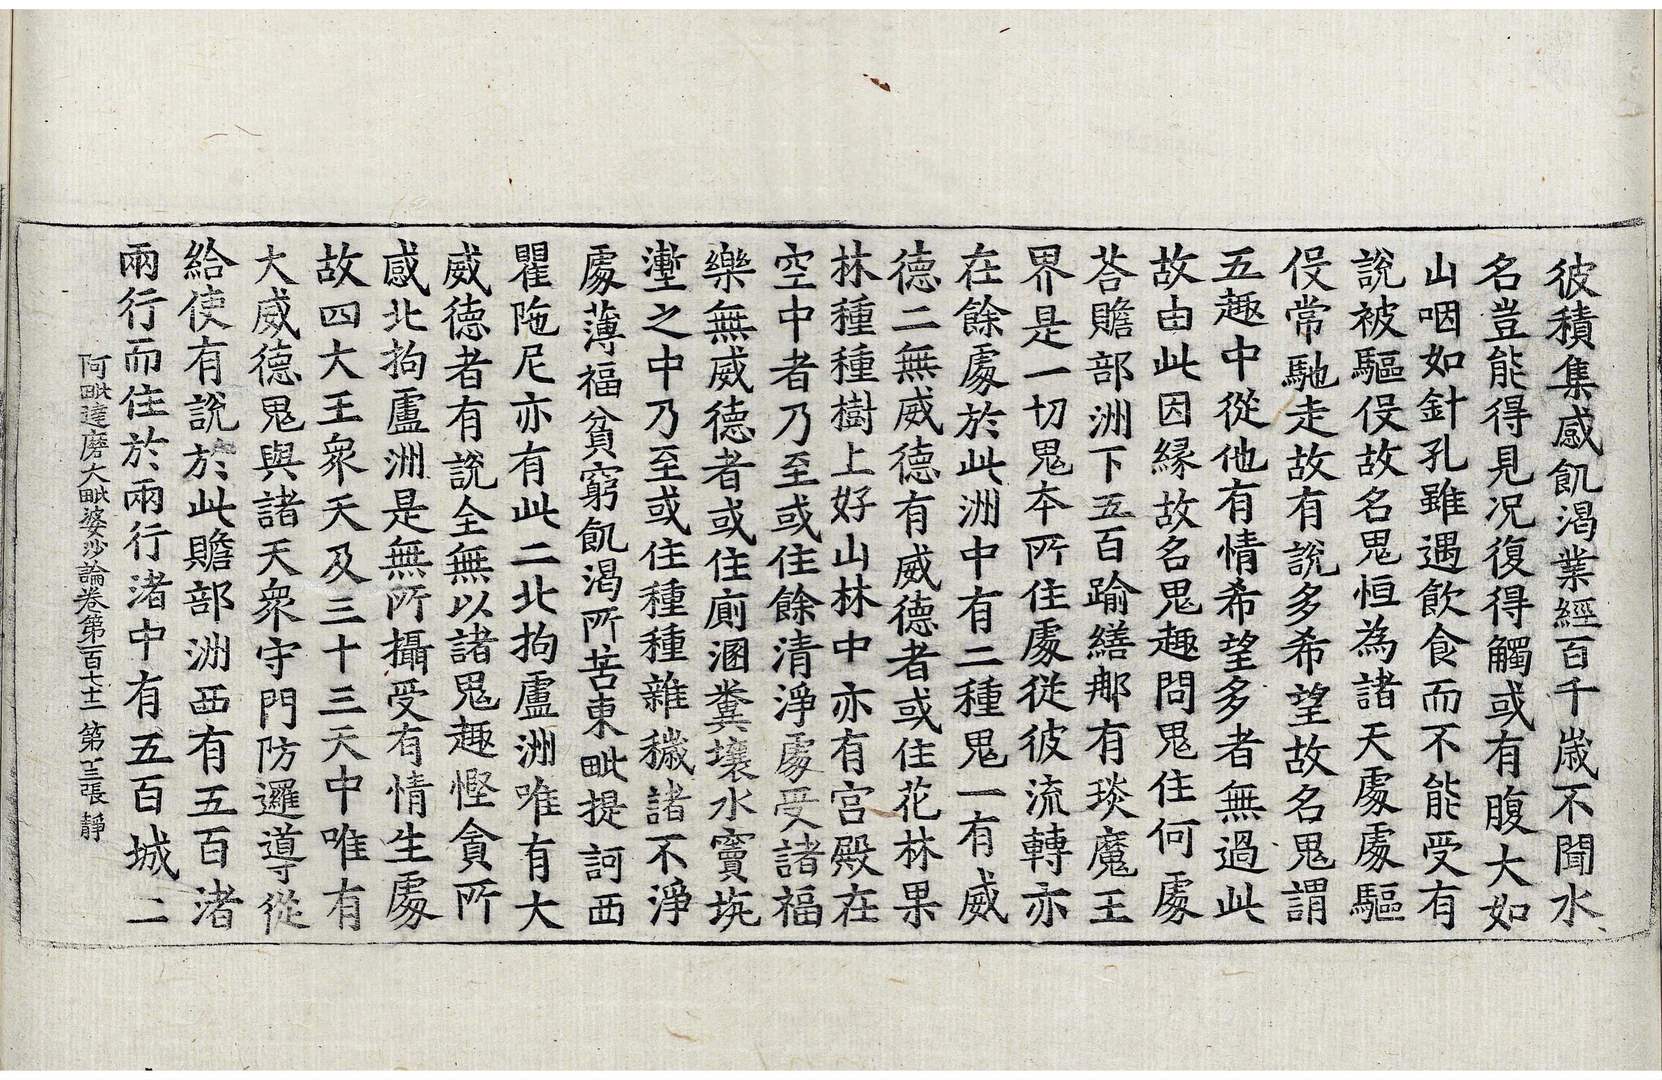 彼積集感飢渴業經百千歲不聞水
名豈能得見况復得觸或有腹大如
山咽如針孔雖遇飲食而不能受有
說被驅役故名鬼恒為諸天處處驅
役常馳走故有說多希望故名鬼謂
五趣中從他有情希望多者無過此
故由此因緣故名鬼趣問鬼住何處
荅贍部洲下五百踰繕那有琰魔王
界是一切鬼本所住處從彼流轉亦
在餘處於此洲中有二種鬼一有威
德二無威德有威德者或住花林果
林種種樹上好山林中亦有宮殿在
空中者乃至或住餘清淨處受諸福
樂無威德者或住廁溷糞壤水竇坑
壍之中乃至或住種種雜穢諸不淨
處薄福貧窮飢渴所苦東毗提訶西
瞿陁尼亦有此二北拘盧洲唯有大
威德者有說全無以諸鬼趣慳貪所
感北拘盧洲是無所攝受有情生處
故四大王衆天及三十三天中唯有
大威德鬼與諸天衆守門防邏導從
給使有說於此贍部洲西有五百渚
兩行而住於兩行渚中有五百城二
阿毗達磨大毗婆沙論卷第一百七十二 第十三張 靜